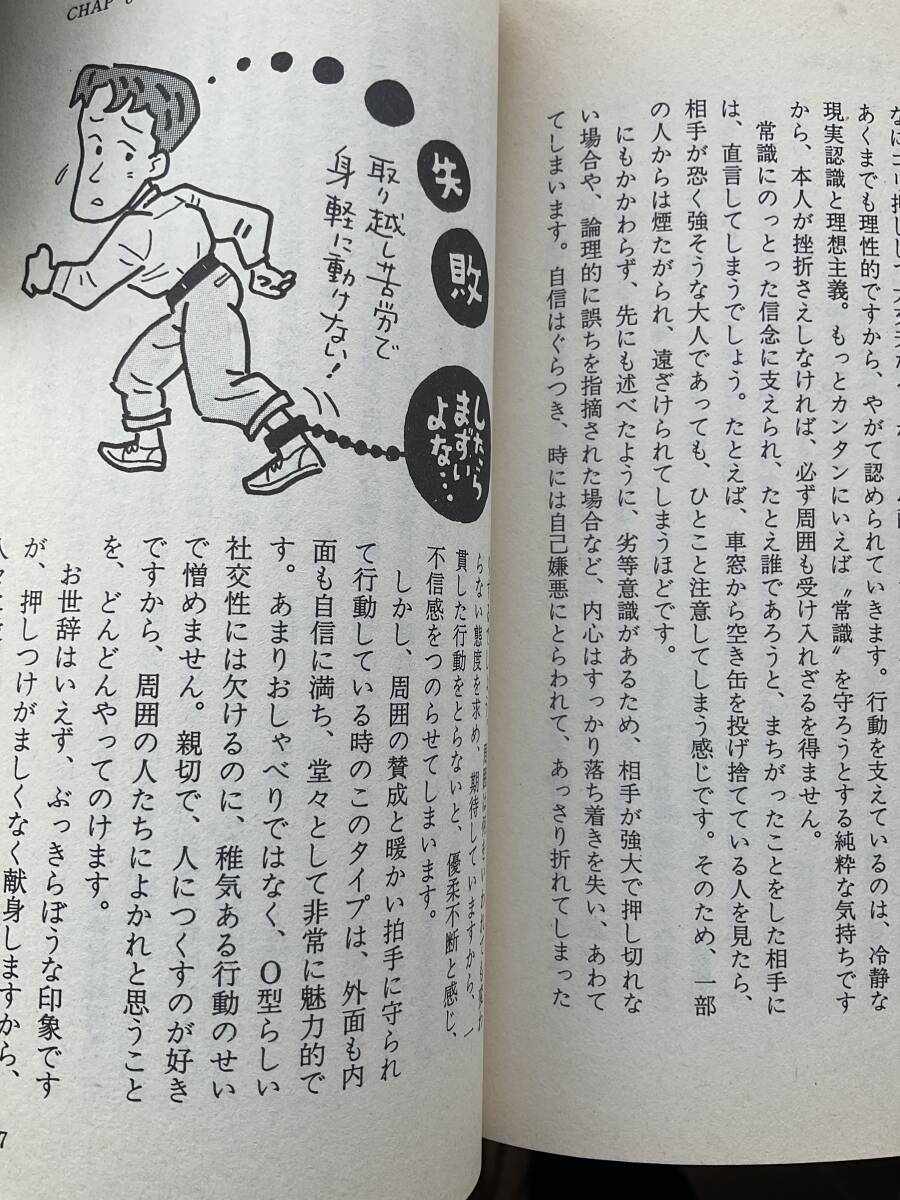 なにゴリ押しして
あくまでも理性的ですから、やがて認められていきます。行動を支えているのは、冷静な
現実認識と理想主義。もっとカンタンにいえば〝常識〟を守ろうとする純粋な気持ちです
から、本人が挫折さえしなければ、必ず周囲も受け入れざるを得ません。
常識にのっとった信念に支えられ、たとえ誰であろうと、まちがったことをした相手に
は、直言してしまうでしょう。たとえば、車窓から空き缶を投げ捨てている人を見たら、
相手が恐く強そうな大人であっても、ひとこと注意してしまう感じです。そのため、一部
の人からは煙たがられ、遠ざけられてしまうほどです。
にもかかわらず、先にも述べたように、劣等意識があるため、相手が強大で押し切れな
い場合や、論理的に誤ちを指摘された場合など、内心はすっかり落ち着きを失い、あわて
てしまいます。自信はぐらつき、時には自己嫌悪にとらわれて、あっさり折れてしまった
CHAP
失
敗
したら
まずい
よな…
取り越し苦労で
身軽に動けない!
らない態度を求め、期待していますから、一
貫した行動をとらないと、優柔不断と感じ、
不信感をつのらせてしまいます。
しかし、周囲の賛成と暖かい拍手に守られ
て行動している時のこのタイプは、外面も内
面も自信に満ち、堂々として非常に魅力的で
す。あまりおしゃべりではなく、O型らしい
社交性には欠けるのに、稚気ある行動のせい
で憎めません。親切で、人につくすのが好き
ですから、周囲の人たちによかれと思うこと
を、どんどんやってのけます。
お世辞はいえず、ぶっきらぼうな印象です
が、押しつけがましくなく献身しますから、
7